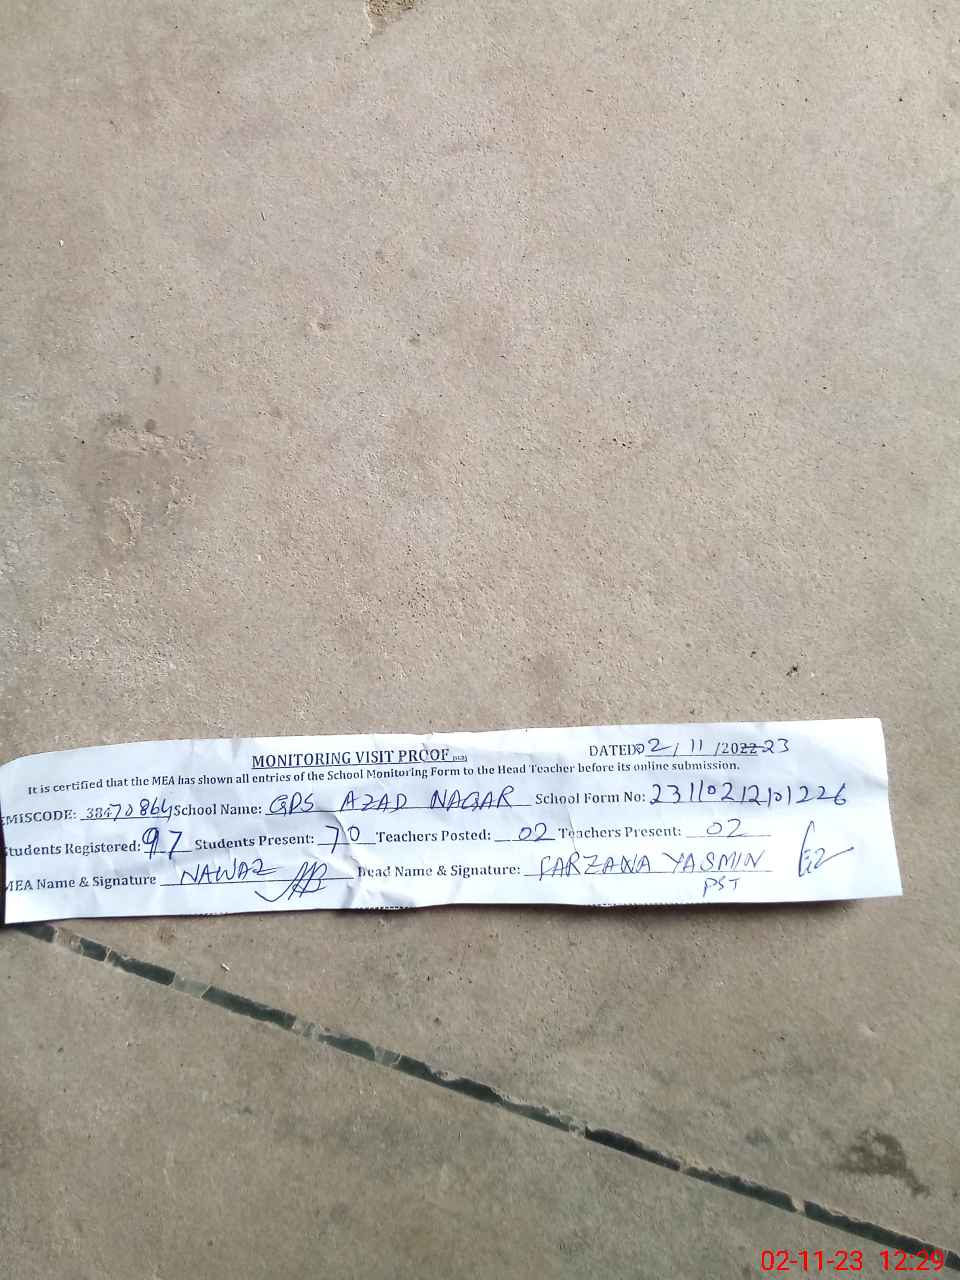 MONITORING VISIT PROOF
DATED 02/11/202223
It is certified that the MEA has shown all entries of the School Monitoring Form to the Head Teacher before its online submission.
EMISCODE: 38470864 School Name: GPS AZAD NAGAR School Form No: 23110212101226
Students Registered: 97 Students Present: 70 Teachers Posted: 02 Teachers Present: 02
MEA Name & Signature NAWAZ Head Name & Signature: FARZANA YASMIN
PST
02-11-23 12:29